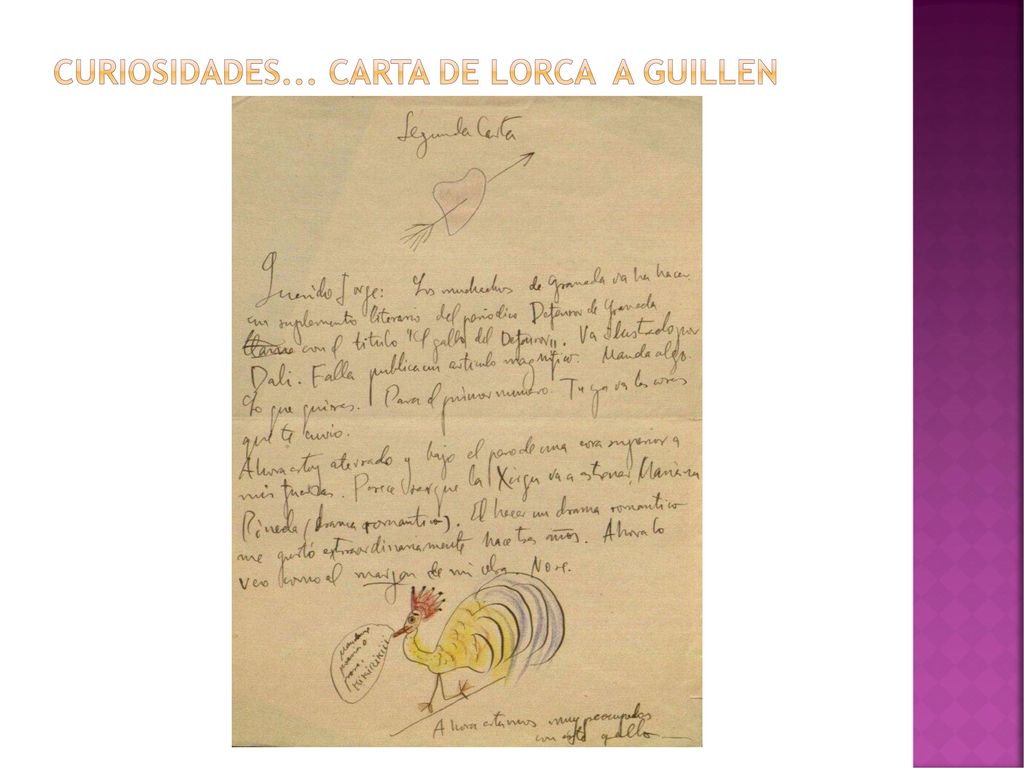 CURIOSIDADES... CARTA DE LORCA A GUILLEN
Segunda Carta
Querido Jorge: Los muchachos de Granada va ha hacer
un suplemento literario del periodico Defensor de Granada
con el titulo "El gallo del Defensor". Va ilustrado por
Dalí. Falla publica un articulo magnífico. Manda algo.
Lo que quieras. Para el primer numero. Tu ya va las cosas
que te envio.
Ahora estoy aterrado y bajo el peso de una cosa superior a
mis fuerzas. Parece ser que la Xirgu va a estrenar Mariana
Pineda (drama romantico). El hacer un drama romantico
me gustó extraordinariamente hace tres años. Ahora lo
veo como al margen de mi obra. No se.
poema o
prosa.
KiKiRiKiii
Ahora estamos muy preocupados
con este gallo